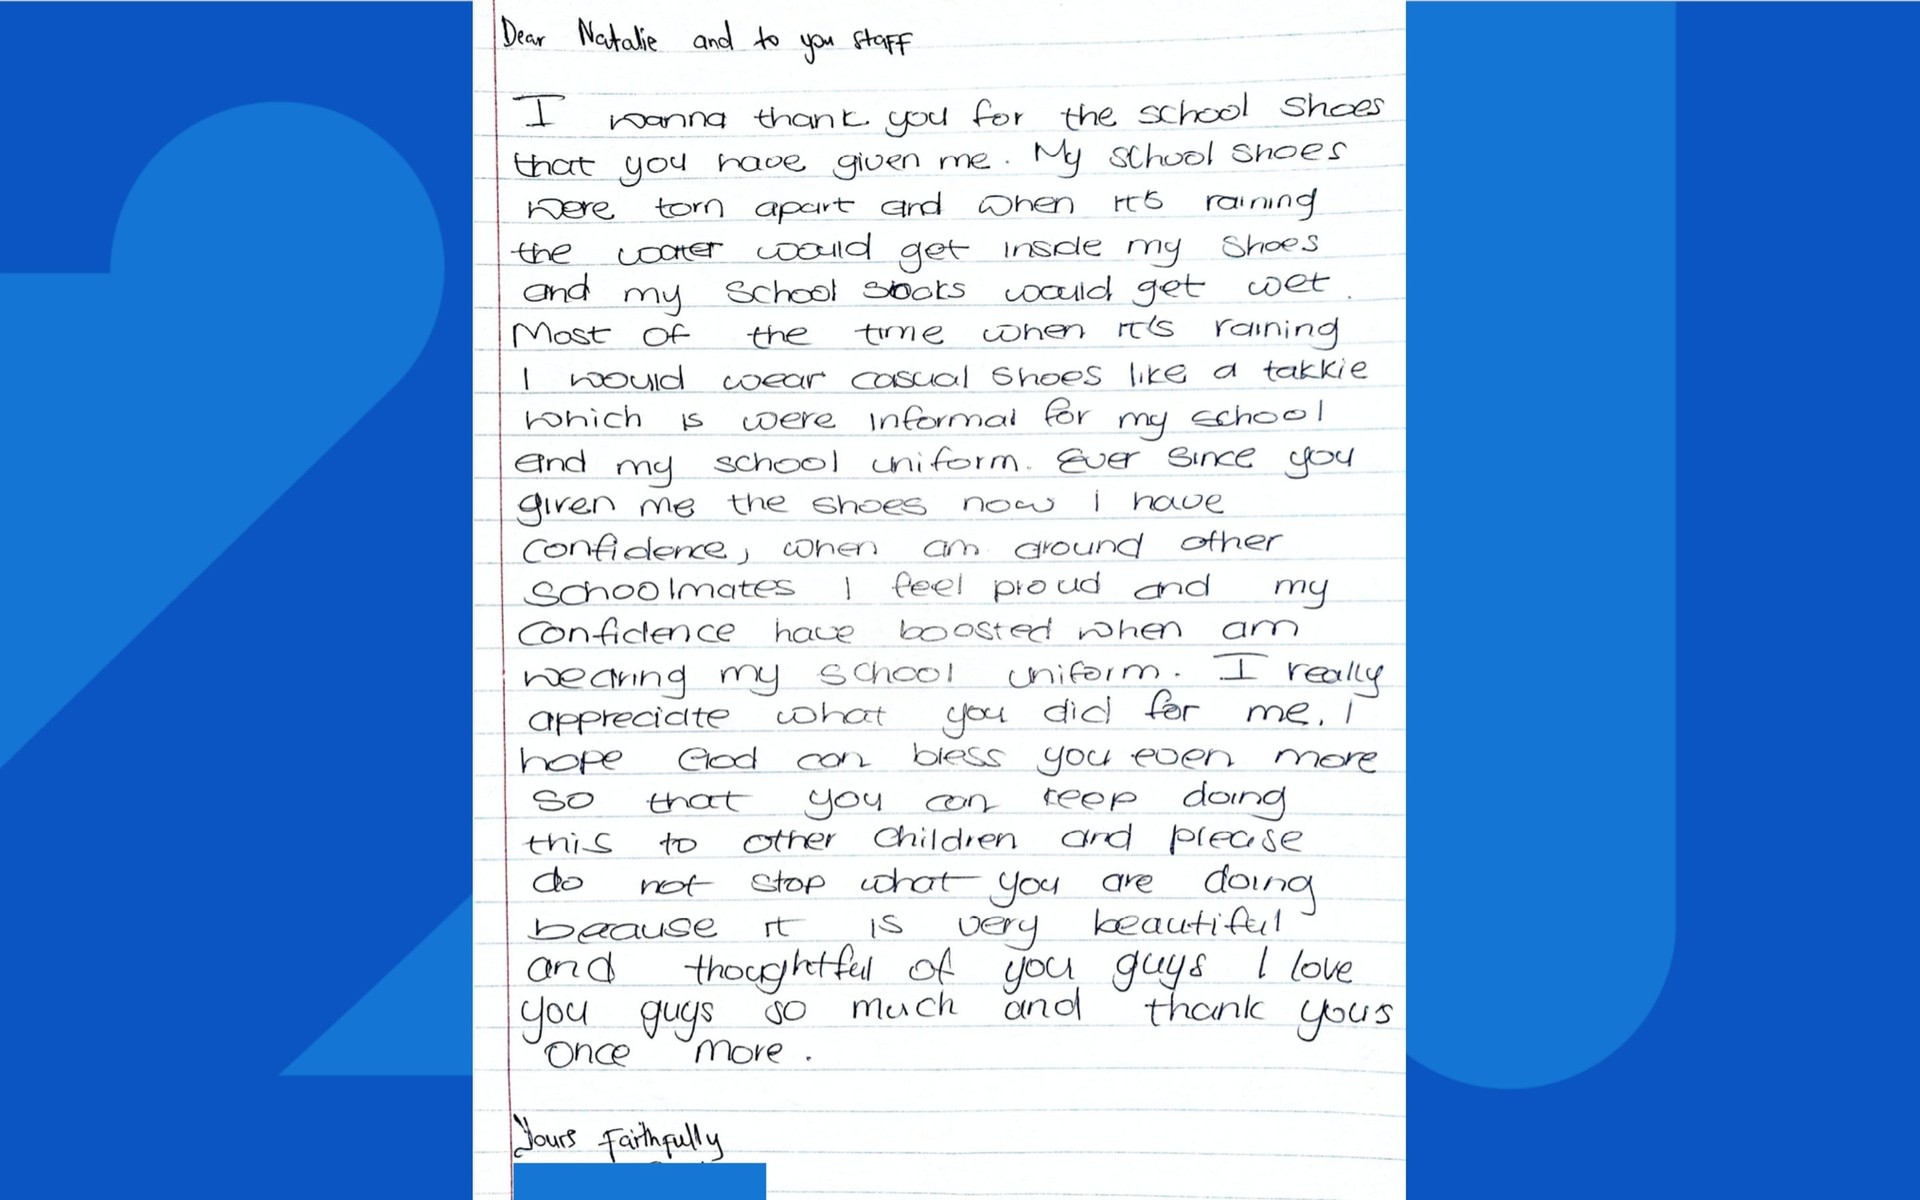 Dear Natalie and to you staff
I wanna thank you for the school shoes
that you have given me. My school shoes
were torn apart and when it's raining
the water would get inside my shoes
and my school socks would get wet.
Most of the time when it's raining
I would wear casual shoes like a takkie
which is were informal for my school
and my school uniform. Ever since you
given me the shoes now i have
confidence, when am around other
schoolmates I feel proud and my
confidence have boosted when am
wearing my school uniform. I really
appreciate what you did for me. I
hope God can bless you even more
so that you can keep doing
this to other children and please
do not stop what you are doing
because it is very beautiful
and thoughtful of you guys I love
you guys so much and thank yous
once more.
Yours Faithfully